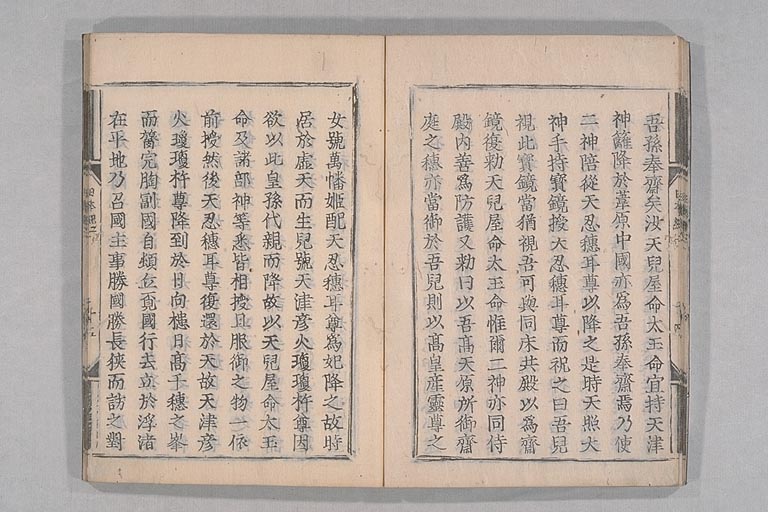 吾孫奉齋矣汝天兒屋命太玉命宜持天津
神籬降於葦原中國亦為吾孫奉齋焉乃使
二神陪從天忍穗耳尊以降之是時天照大
神手持寳鏡授天忍穗耳尊而祝之曰吾兒
視此寳鏡當猶視吾可與同床共殿以為齋
鏡復勅天兒屋命太玉命惟爾二神亦同侍
殿內善為防護又勅曰以吾高天原所御齋
庭之穗亦當御於吾兒則以高皇產靈尊之
女號萬幡姬配天忍穗耳尊為妃降之故時
居於虛天而生兒號天津彥火瓊瓊杵尊因
欲以此皇孫代親而降故以天兒屋命太玉
命及諸部神等悉皆相授且服御之物一依
前授然後天忍穗耳尊復還於天故天津彥
火瓊瓊杵尊降到於日向槵日高千穗之峯
而膂宍胸副國自頓丘覓國行去立於浮渚
在平地乃召國主事勝國勝長狹而訪之對